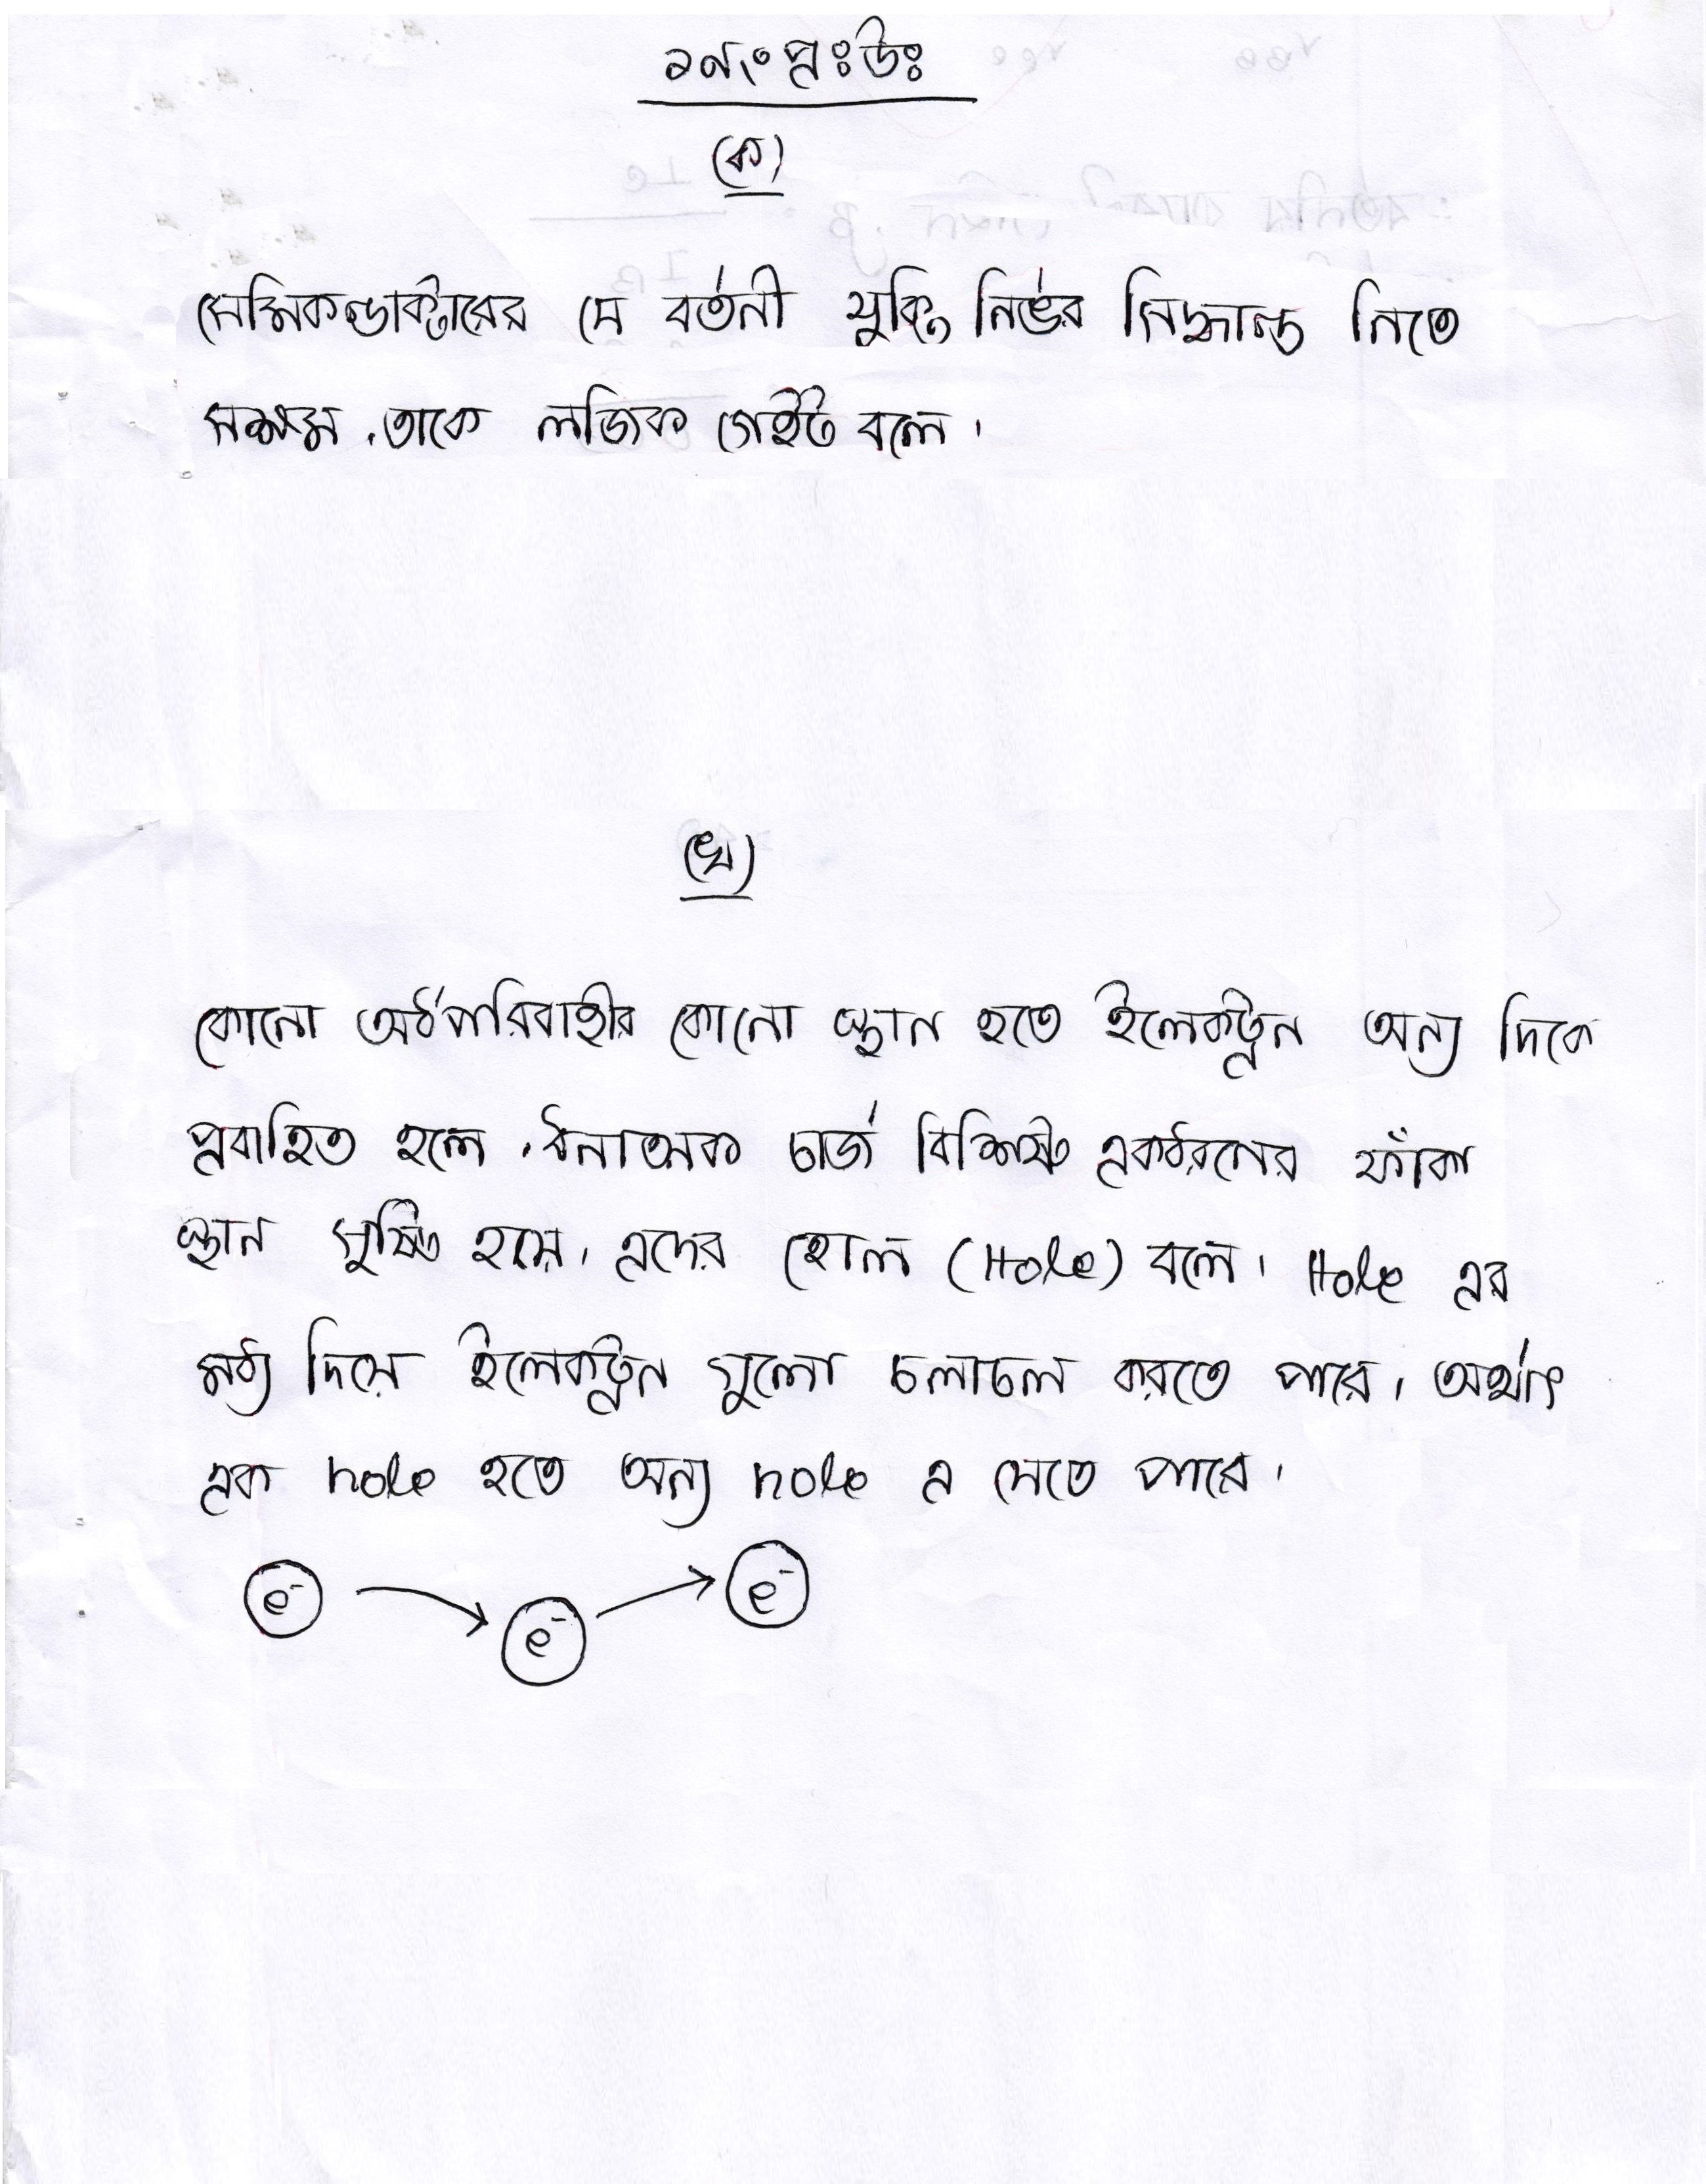 ১নং প্রঃউঃ
(ক)
সেমিকন্ডাক্টারের যে বর্তনী যুক্তি নির্ভর সিদ্ধান্ত নিতে
সক্ষম, তাকে লজিক গেইট বলে।
(খ)
কোনো অর্ধপরিবাহীর কোনো স্থান হতে ইলেকট্রন অন্য দিকে
প্রবাহিত হলে, ধনাত্মক চার্জ বিশিষ্ট একধরনের ফাঁকা
স্থান সৃষ্টি হয়। এদের হোল (Hole) বলে। Hole এর
মধ্য দিয়ে ইলেকট্রন গুলো চলাচল করতে পারে। অর্থাৎ
এক hole হতে অন্য hole এ যেতে পারে।
e⁻ e⁻ e⁻